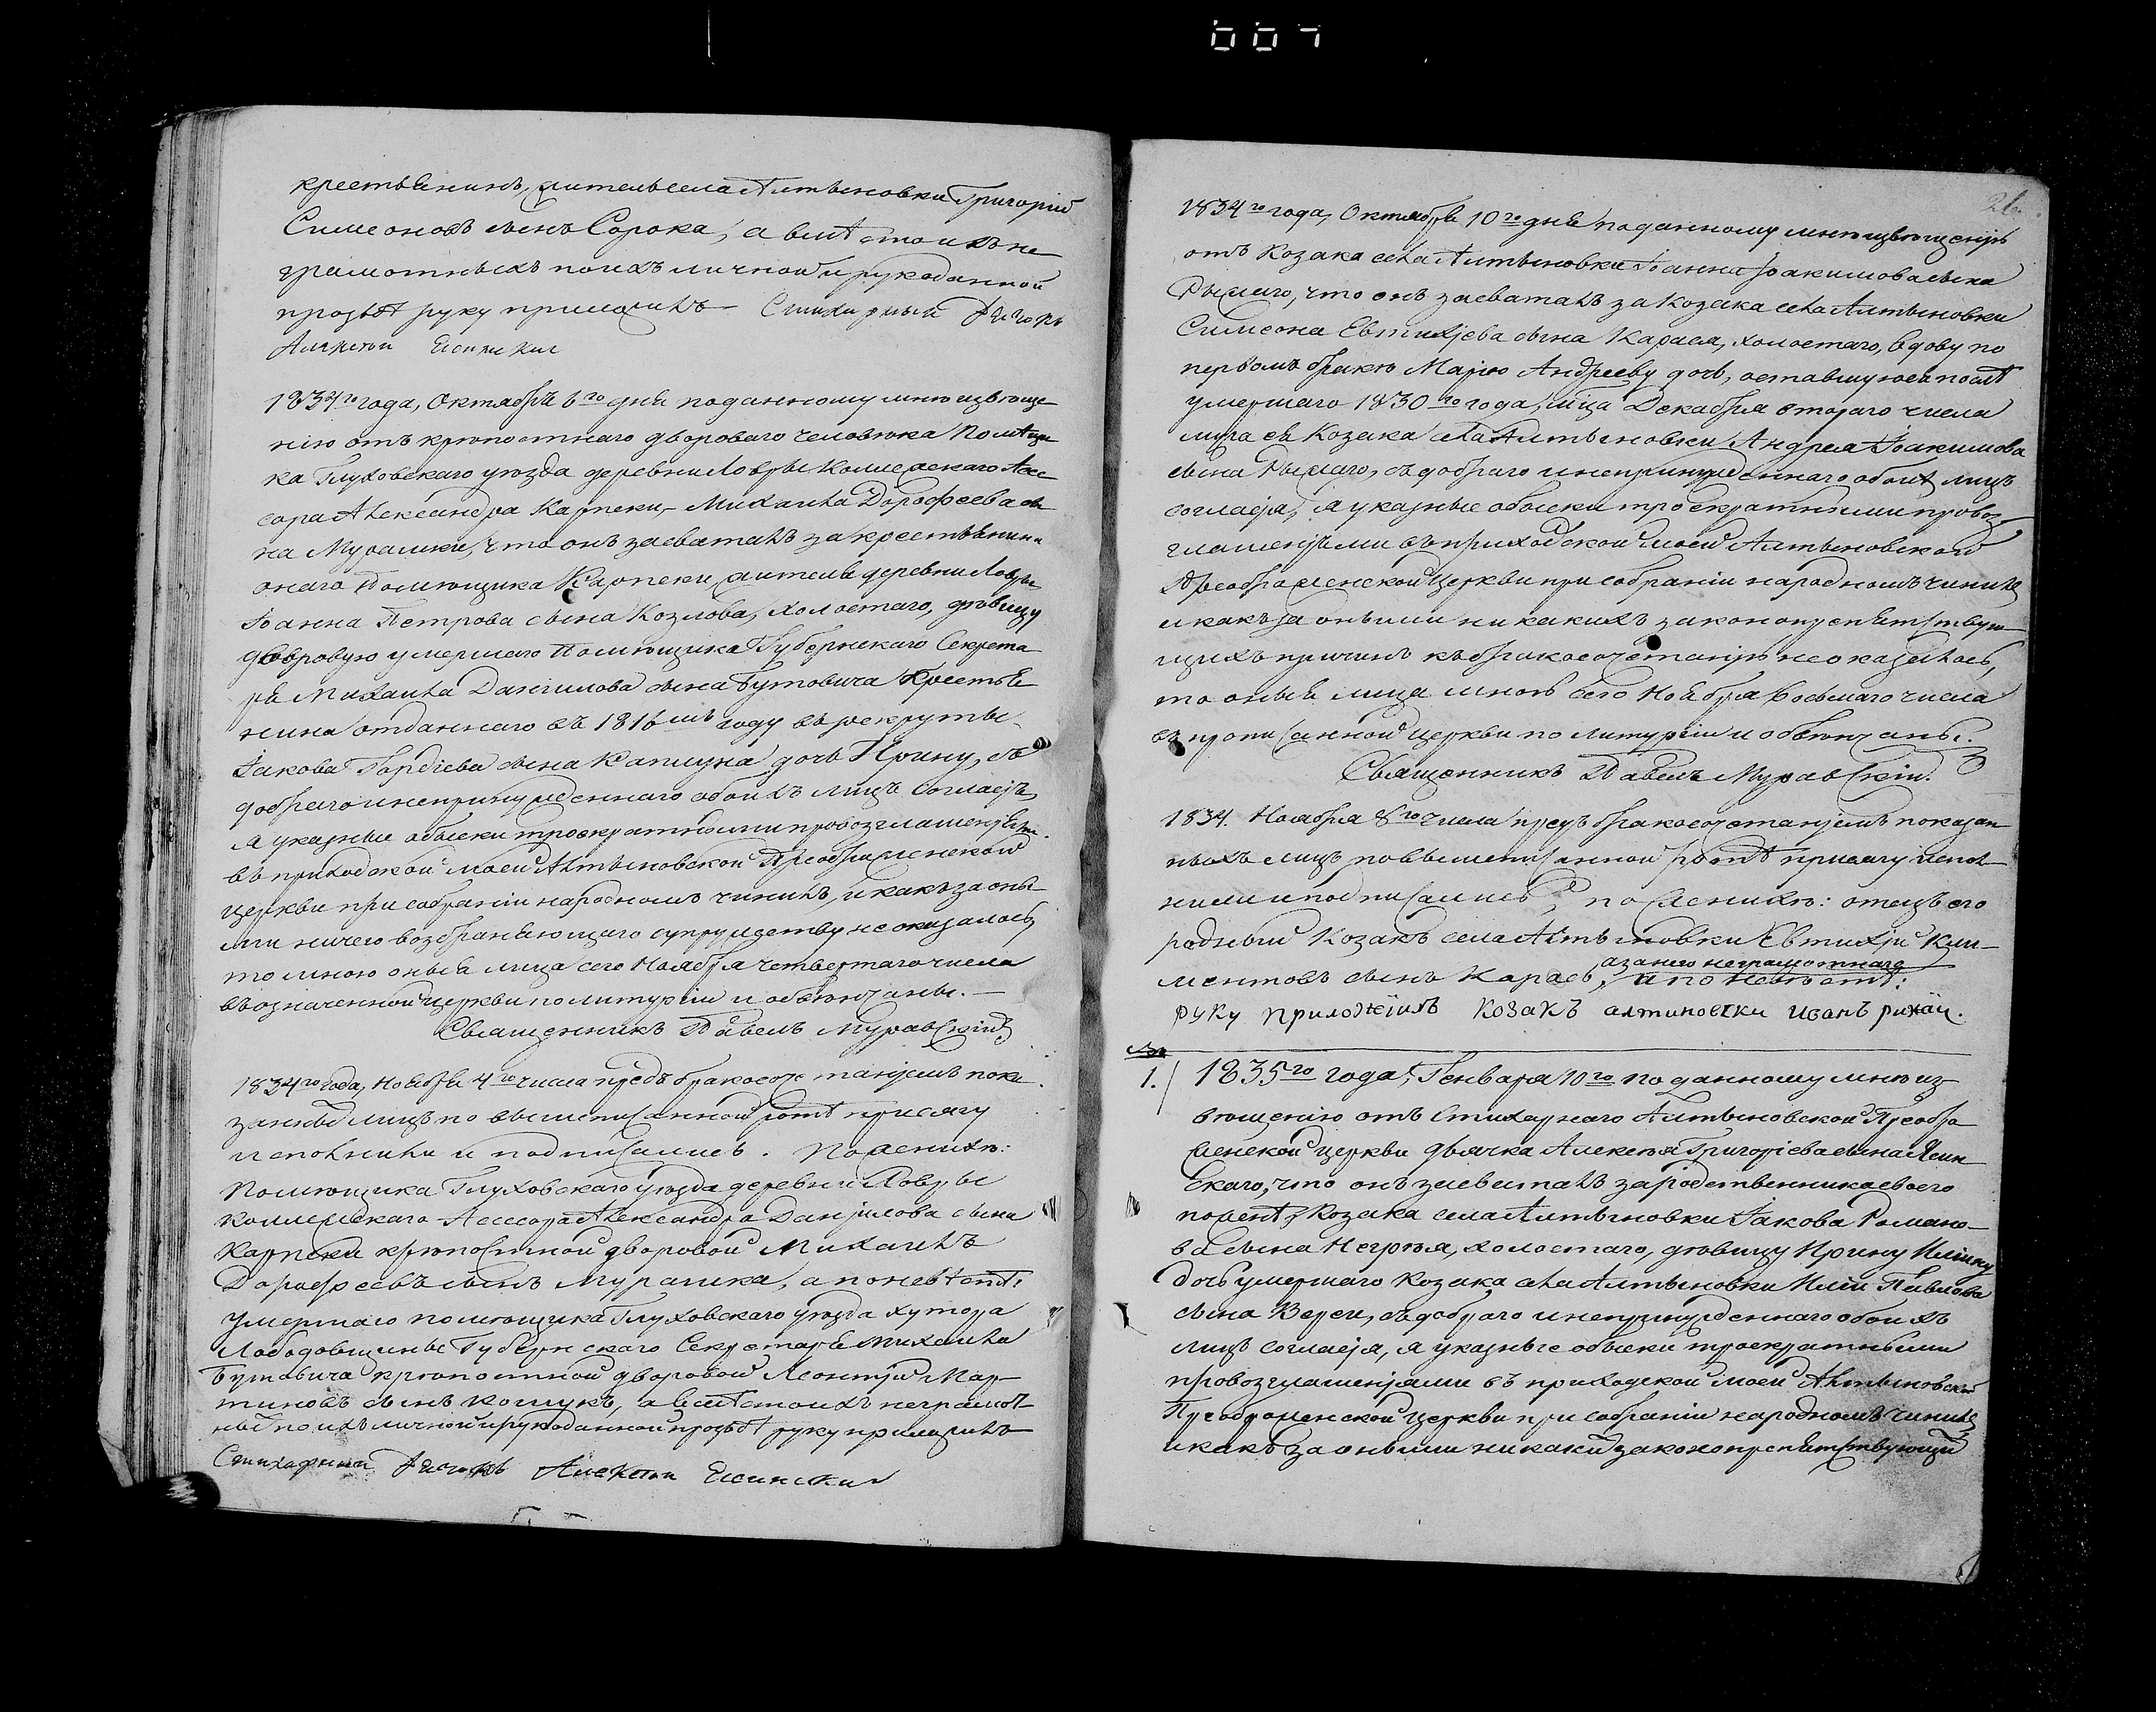 007
крестьянинъ, житель села Алтыновки Григорій
Симеоновъ сынъ Сорока, а вмѣсто ихъ не
грамотныхъ по ихъ личной и рукоданной
прозьбѣ руку приложилъ Стихарный дячокъ
Алексѣй Есинскій
1834го года, Октября 6го дня по данному мнѣ извѣще
нію отъ крѣпостнаго двороваго человѣка Помѣщи
ка Глуховскаго уѣзда деревни Ловры Коллежскаго Асе
сора Александра Карпеки, Михаила Дорофеева сы
на Мурашки, что онъ засваталъ за крестьянина
онаго Помѣщика Карпеки, жителя деревни Ловры
Іоанна Петрова сына Козлова, холостаго, дѣвицу
дворовую умершаго Помѣщика Губернскаго Секрета
ря Михаила Даніилова сына Бутовича Крестья
нина отданнаго въ 1816мъ году въ рекруты
Іакова Гордіева сына Капцуна дочь Ирину, съ
добраго и непринужденнаго обоихъ лицъ согласія,
я указные обыски троекратными провозглашеніями
въ приходской моей Алтыновской Преображенской
церкви при собраніи народномъ чинилъ, и какъ за оны
ми ничего возбраняющаго супружеству не оказалось,
то мною оныя лица сего Ноября четвертаго числа
въ означенной церкви по литургіи и обвѣнчаны.
Священникъ Павелъ Муравскій
1834го года, Ноября 4го числа предъ бракосочетаніемъ пока
занные лицъ по вышеписанной ротѣ присягу
исполнили и подписались. По женихѣ:
Помѣщика Глуховскаго уѣзда деревни Ловры
Коллежскаго Асесора Александра Даніилова сына
Карпеки крѣпостной дворовой Михаилъ
Дорофеевъ сынъ Мурашка, а по невѣстѣ:
умершаго помѣщика Глуховскаго уѣзда хутора
Лободовщины Губернскаго Секретаря Михаила
Бутовича крѣпостной дворовой Леонтій Мар
тиновъ сынъ Кошукъ, а вмѣсто ихъ неграмот
ныѣ по ихъ личной и рукоданной прозьбѣ руку приложилъ
Стихарный дячокъ Алексѣй Есинскій
26.
1834го года, Октября 10го дня по данному мнѣ извѣщенію
отъ Козака села Алтыновки Іоанна Іоакимова сына
Рыжаго, что онъ засваталъ за Козака села Алтыновки
Симеона Евтихіева сына Карася, холостаго, вдову по
первомъ бракѣ Марію Андрееву дочь, оставшуюся послѣ
умершаго 1830го года, мца Декабря втораго числа
мужа ея Козака села Алтыновки Андрея Іоакимова
сына Рыжаго, съ добраго и непринужденнаго обоихъ лицъ
согласія, я указные обыски троекратными провоз
глашеніями въ приходской моей Алтыновской
Преображенской церкви при собраніи народномъ чинилъ
и какъ за оными никакихъ законопрепятствую
щихъ причинъ къ бракосочетанію не оказалось,
то оныя лица мною сего Ноября восьмаго числа
въ прописанной церкви по литургіи и обвѣнчаны.
Священникъ Павелъ Муравскій.
1834. Ноября 8го числа предъ бракосочетаніемъ показан
ныхъ лицъ по вышеписанной ротѣ присягу испол
нили и подписались, по женихѣ: отецъ его
родный Козакъ села Алтыновки Евтихій Кли
ментовъ сынъ Карась, а за него неграмотнаго и по невѣстѣ:
руку приложилъ козакъ алтиновски иванъ рижай.
1. 1835го года, Генваря 10го по данному мнѣ из
вѣщенію отъ Стихарнаго Алтыновской Преобра
женской церкви дьячка Алексѣя Григоріева сына Ясин
скаго, что онъ засваталъ за родственника своего
по женѣ, Козака села Алтыновки Іакова Романо
ва сына Негрѣя, холостаго, дѣвицу Ирину Иліину
дочь умершаго Козака села Алтыновки Иліи Павлова
сына Вереи, съ добраго и непринужденнаго обоихъ
лицъ согласія, я указные обыски троекратными
провозглашеніями въ приходской моей Алтыновской
Преображенской церкви при собраніи народномъ чинилъ,
и какъ за оными никакий законопрепятствующій